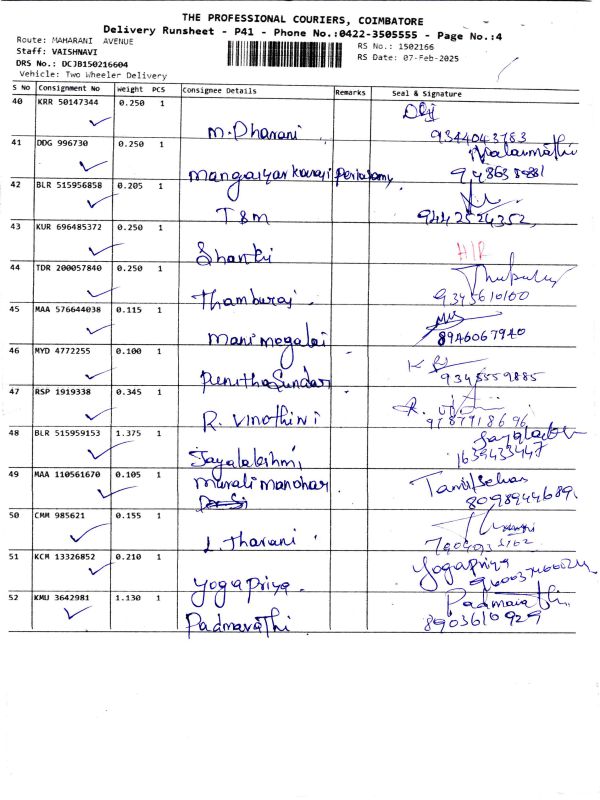 THE PROFESSIONAL COURIERS, COIMBATORE
Delivery Runsheet - P41 - Phone No.:0422-3505555 - Page No.:4
Route: MAHARANI AVENUE
Staff: VAISHNAVI
DRS No.: DCJB150216604
Vehicle: Two Wheeler Delivery
RS No.: 1502166
RS Date: 07-Feb-2025
S No Consignment No Weight PCS Consignee Details Remarks Seal & Signature
40 KRR 50147344 0.250 1
M. Dharani 9344043783
41 DDG 996730 0.250 1
Mangaiyarkarasi Periasamy
42 BLR 515956858 0.205 1
T S M 9442524352
43 KUR 696485372 0.250 1
Shanthi H/R
44 TDR 200057840 0.250 1
Thamburaj 9345610100
45 MAA 576644038 0.115 1
Manimegalai 8946067940
46 MYD 4772255 0.100 1
Sundar 9345559885
47 RSP 1919338 0.345 1
R. Vinothini 9187918696
48 BLR 515959153 1.375 1
Jayalakshmi 1639433447
49 MAA 110561670 0.105 1
Murali Manohar 8098944689
50 CMM 985621 0.155 1
L. Tharani
51 KCM 13326852 0.210 1
Yogapriya Yogapriya
52 KMU 3642981 1.130 1
Padmavathi 8903610929